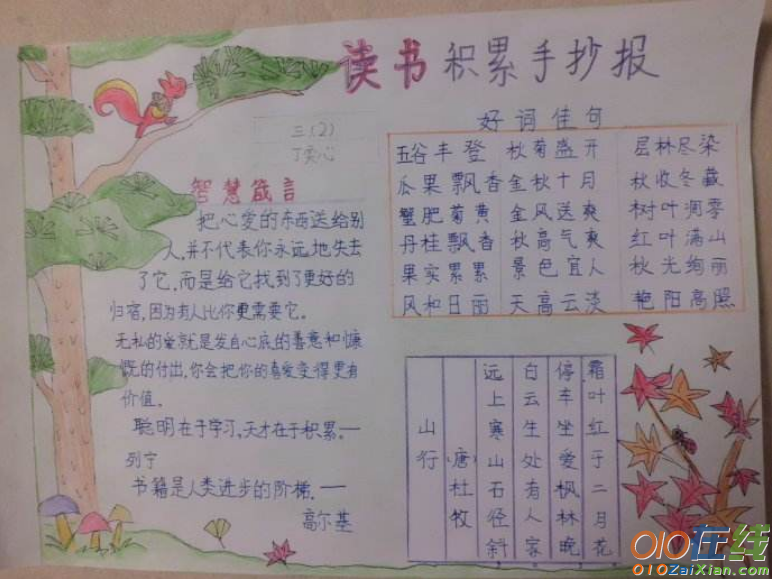 读书积累手抄报
三(2)
智慧箴言
把心爱的东西送给别
人,并不代表你永远地失去
了它,而是给它找到了更好的
归宿,因为有人比你更需要它。
无私的爱就是发自心底的善意和慷
慨的付出,你会把你的喜爱变得更有
价值。
聪明在于学习,天才在于积累。—
列宁
书籍是人类进步的阶梯.—
高尔基
好词佳句
五谷丰登 秋菊盛开 层林尽染
瓜果飘香 金秋十月 秋收冬藏
蟹肥菊黄 金风送爽 树叶凋零
丹桂飘香 秋高气爽 红叶满山
果实累累 景色宜人 秋光绚丽
风和日丽 天高云淡 艳阳高照
山行
(唐)杜牧
远上寒山石径斜
白云生处有人家
停车坐爱枫林晚
霜叶红于二月花
010在线
010ZaiXian.com